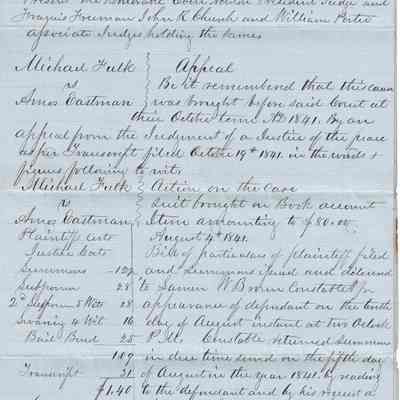 Present the Honorable President Judge and
Francis Freeman John R Church and William Porter
associate Judges holding the same
Michael Fulk } Appeal
vs } Be it remembered that this cause
Amos Eastman } was brought before said Court at
their October term AD 1841. By an
appeal from the Judgment of a Justice of the peace
as per Transcript filed October 19th 1841. in the words &
figures following to wit,
Michael Fulk } Action on the Case
vs } Suit brought on Book account
Amos Eastman } Item amounting to $80.00
Plaintiffs Costs August 4th 1841.
Justice Costs Bill of particulars of plaintiff filed
Summons 12½ and summons issued and delivered
Subpoena 28 to Samuel W Brown Constable for
2d Subpoena 5 Witt 28 appearance of defendant on the tenth
Swearing 4 Wit 16 day of August instant at two Oclock
Bail Bond 25 P.M. Constable returned summons
1.09 in due time served on the fifth day
Transcript 31 of August in the year 1841. by reading
$1.40 to the defendant and by his request a